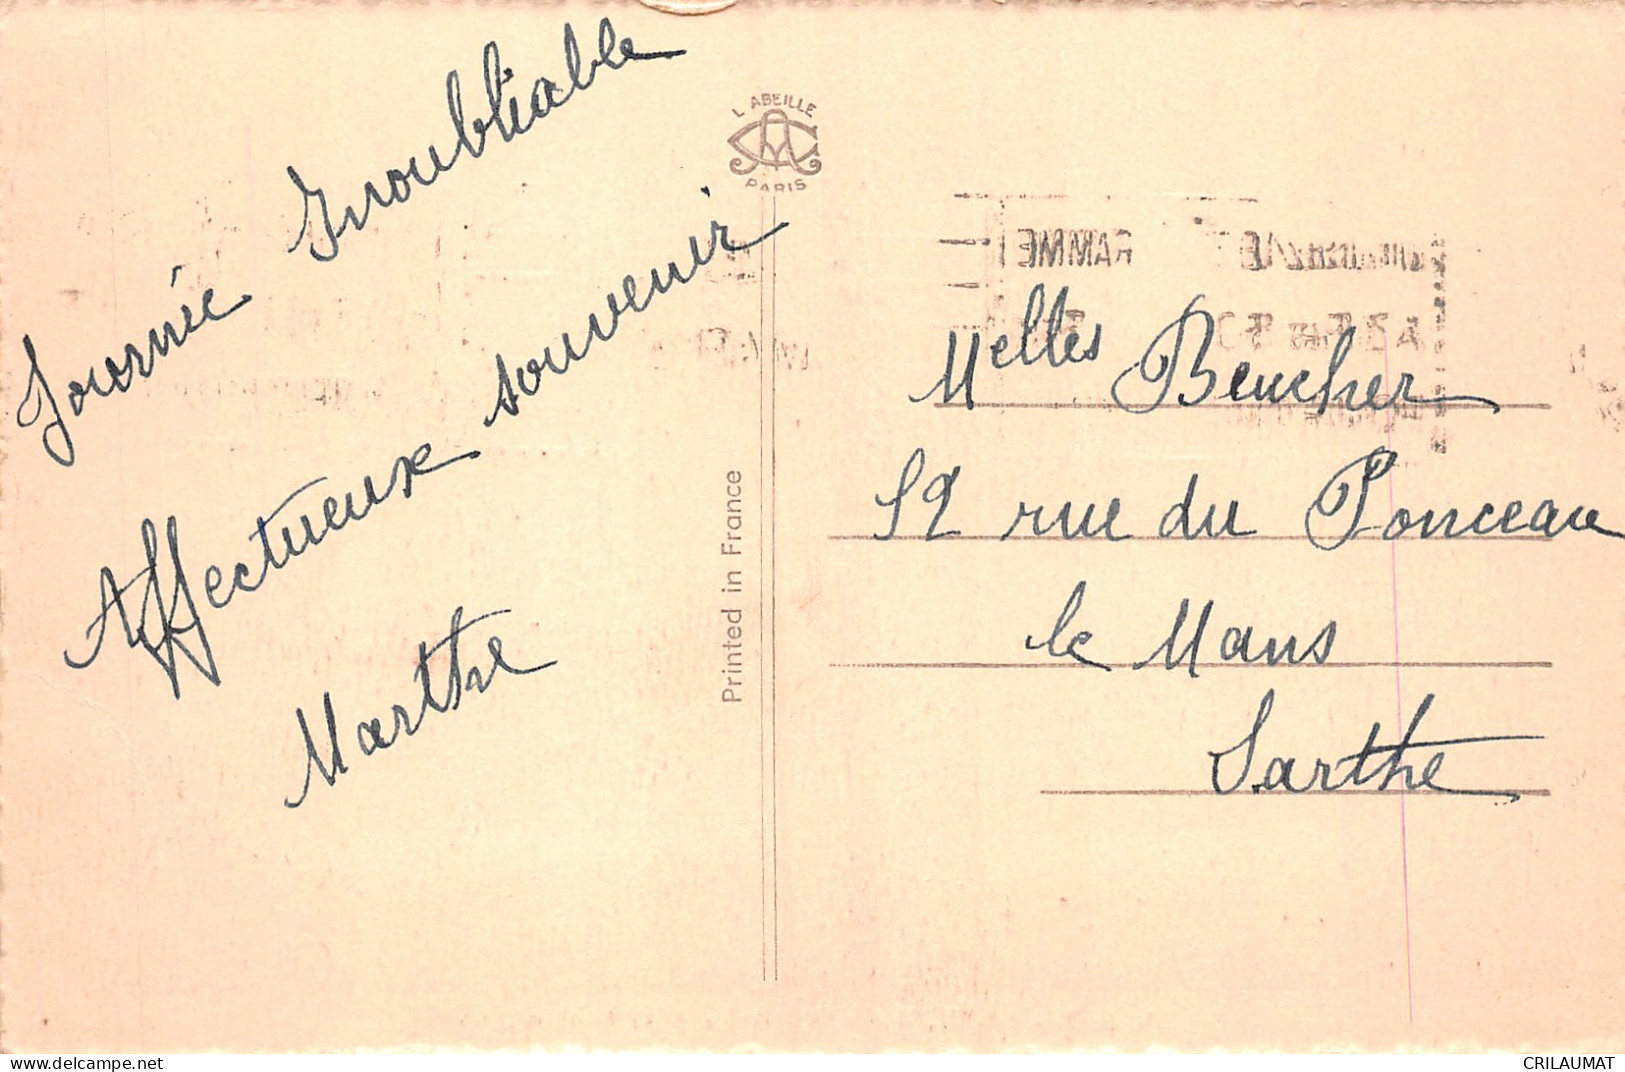 Journée Inoubliable
Affectueux souvenir
Marthe
L ABEILLE
PARIS
Printed in France
Melles Beucher
52 rue du Ponceau
le Mans
Sarthe
www.delcampe.net
CRILAUMAT